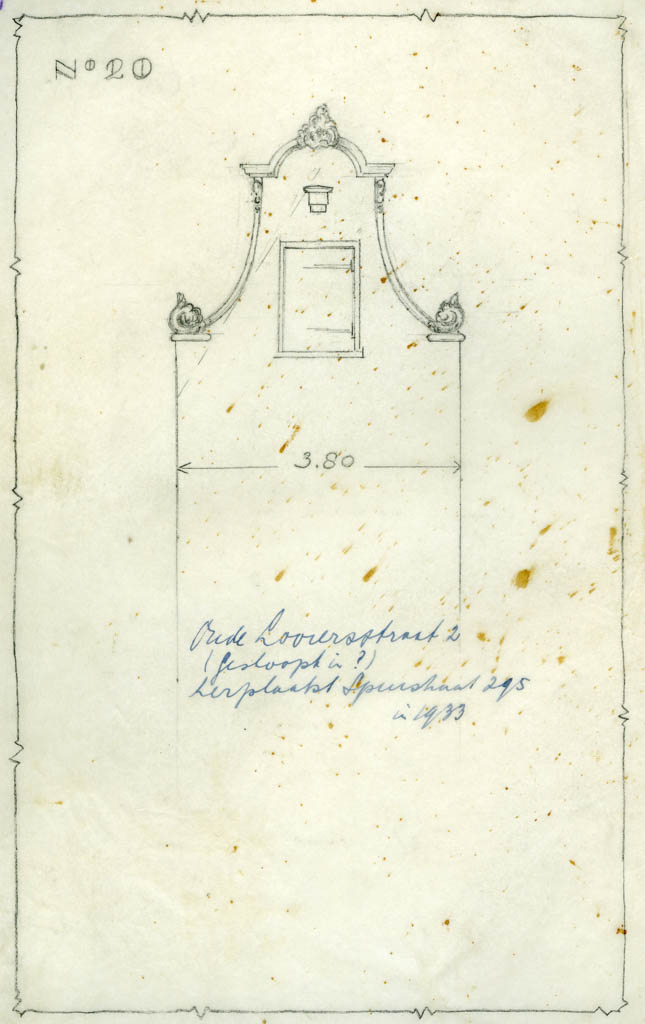 No 20
3.80
Oude Looiersstraat 2
(gesloopt in ?)
herplaatst Spuistraat 295
in 1933